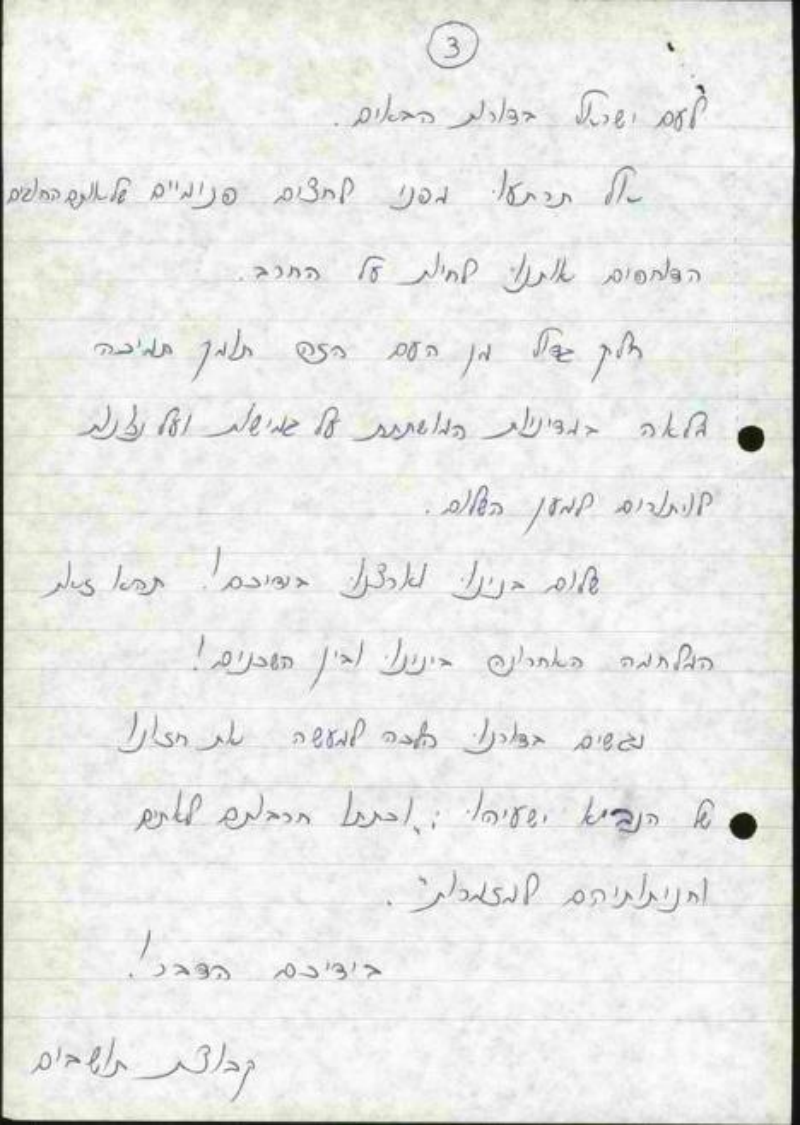 3
לעם ישראל בדורות הבאים.
אל תרתעו מפני לחצים פנימיים של אותם החוגים
הדוחפים אותנו לחיות על החרב.
חלק גדול מן העם הזה תומך תמיכה
מלאה במדיניות המושתתת על גמישות ועל נכונות
לויתורים למען השלום.
שלום בנינו וארצנו בידיכם! תהא זאת
המלחמה האחרונה בינינו ובין השכנים!
נגשים בדורנו הלכה למעשה את חזונו
של הנביא ישעיהו: "וכתתו חרבותם לאתים
וחניתותיהם למזמרות".
בידיכם הדבר!
קבוצת תושבים